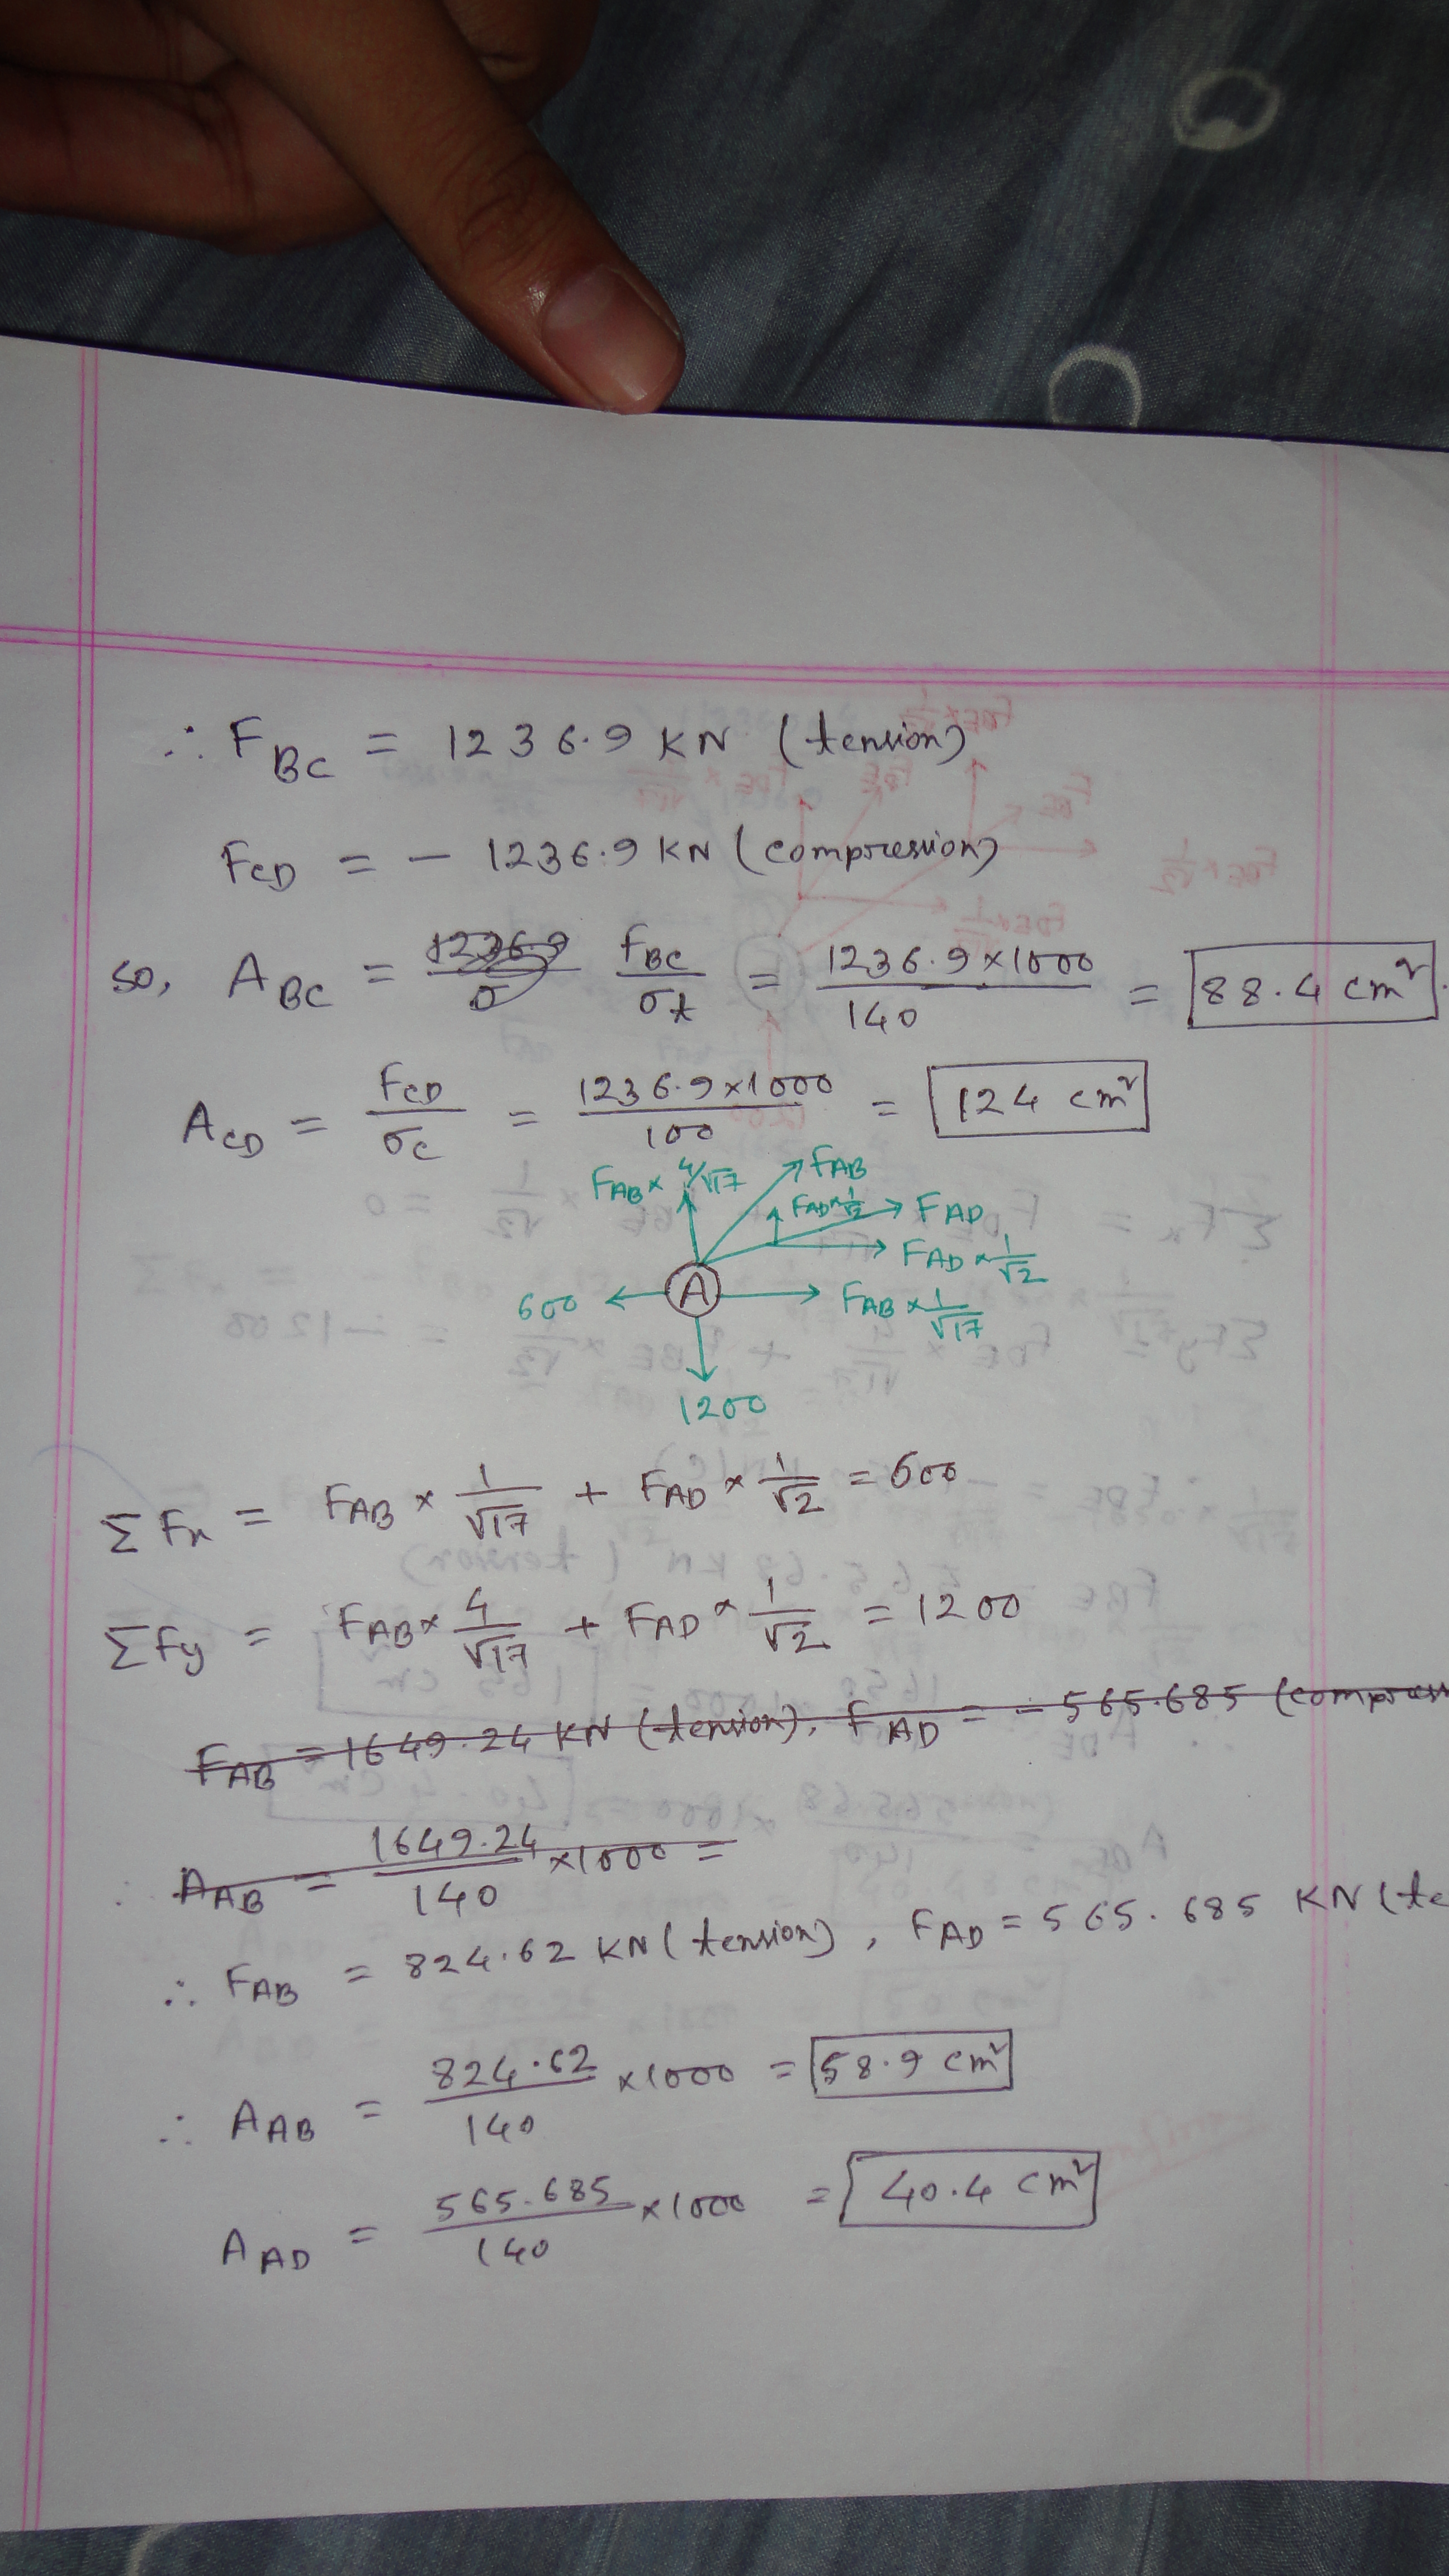 ∴ F_BC = 1236.9 KN (tension)
F_CD = - 1236.9 KN (compression)
so, A_BC = F_BC/σ_t = 1236.9×1000/140 = 88.4 cm².
A_CD = F_CD/σ_c = 1236.9×1000/100 = 124 cm²
F_AB × 4/√17 F_AB
F_AD × 1/√2 F_AD
F_AD × 1/√2
600 A F_AB × 1/√17
1200
ΣFx = F_AB × 1/√17 + F_AD × 1/√2 = 600
ΣFy = F_AB × 4/√17 + F_AD × 1/√2 = 1200
F_AB = 1649.24 KN (tension), F_AD = - 565.685 (compress
∴ A_AB = 1649.24/140 ×1000 =
∴ F_AB = 824.62 KN (tension), F_AD = 565.685 KN (te
∴ A_AB = 824.62/140 ×1000 = 58.9 cm²
A_AD = 565.685/140 ×1000 = 40.4 cm²